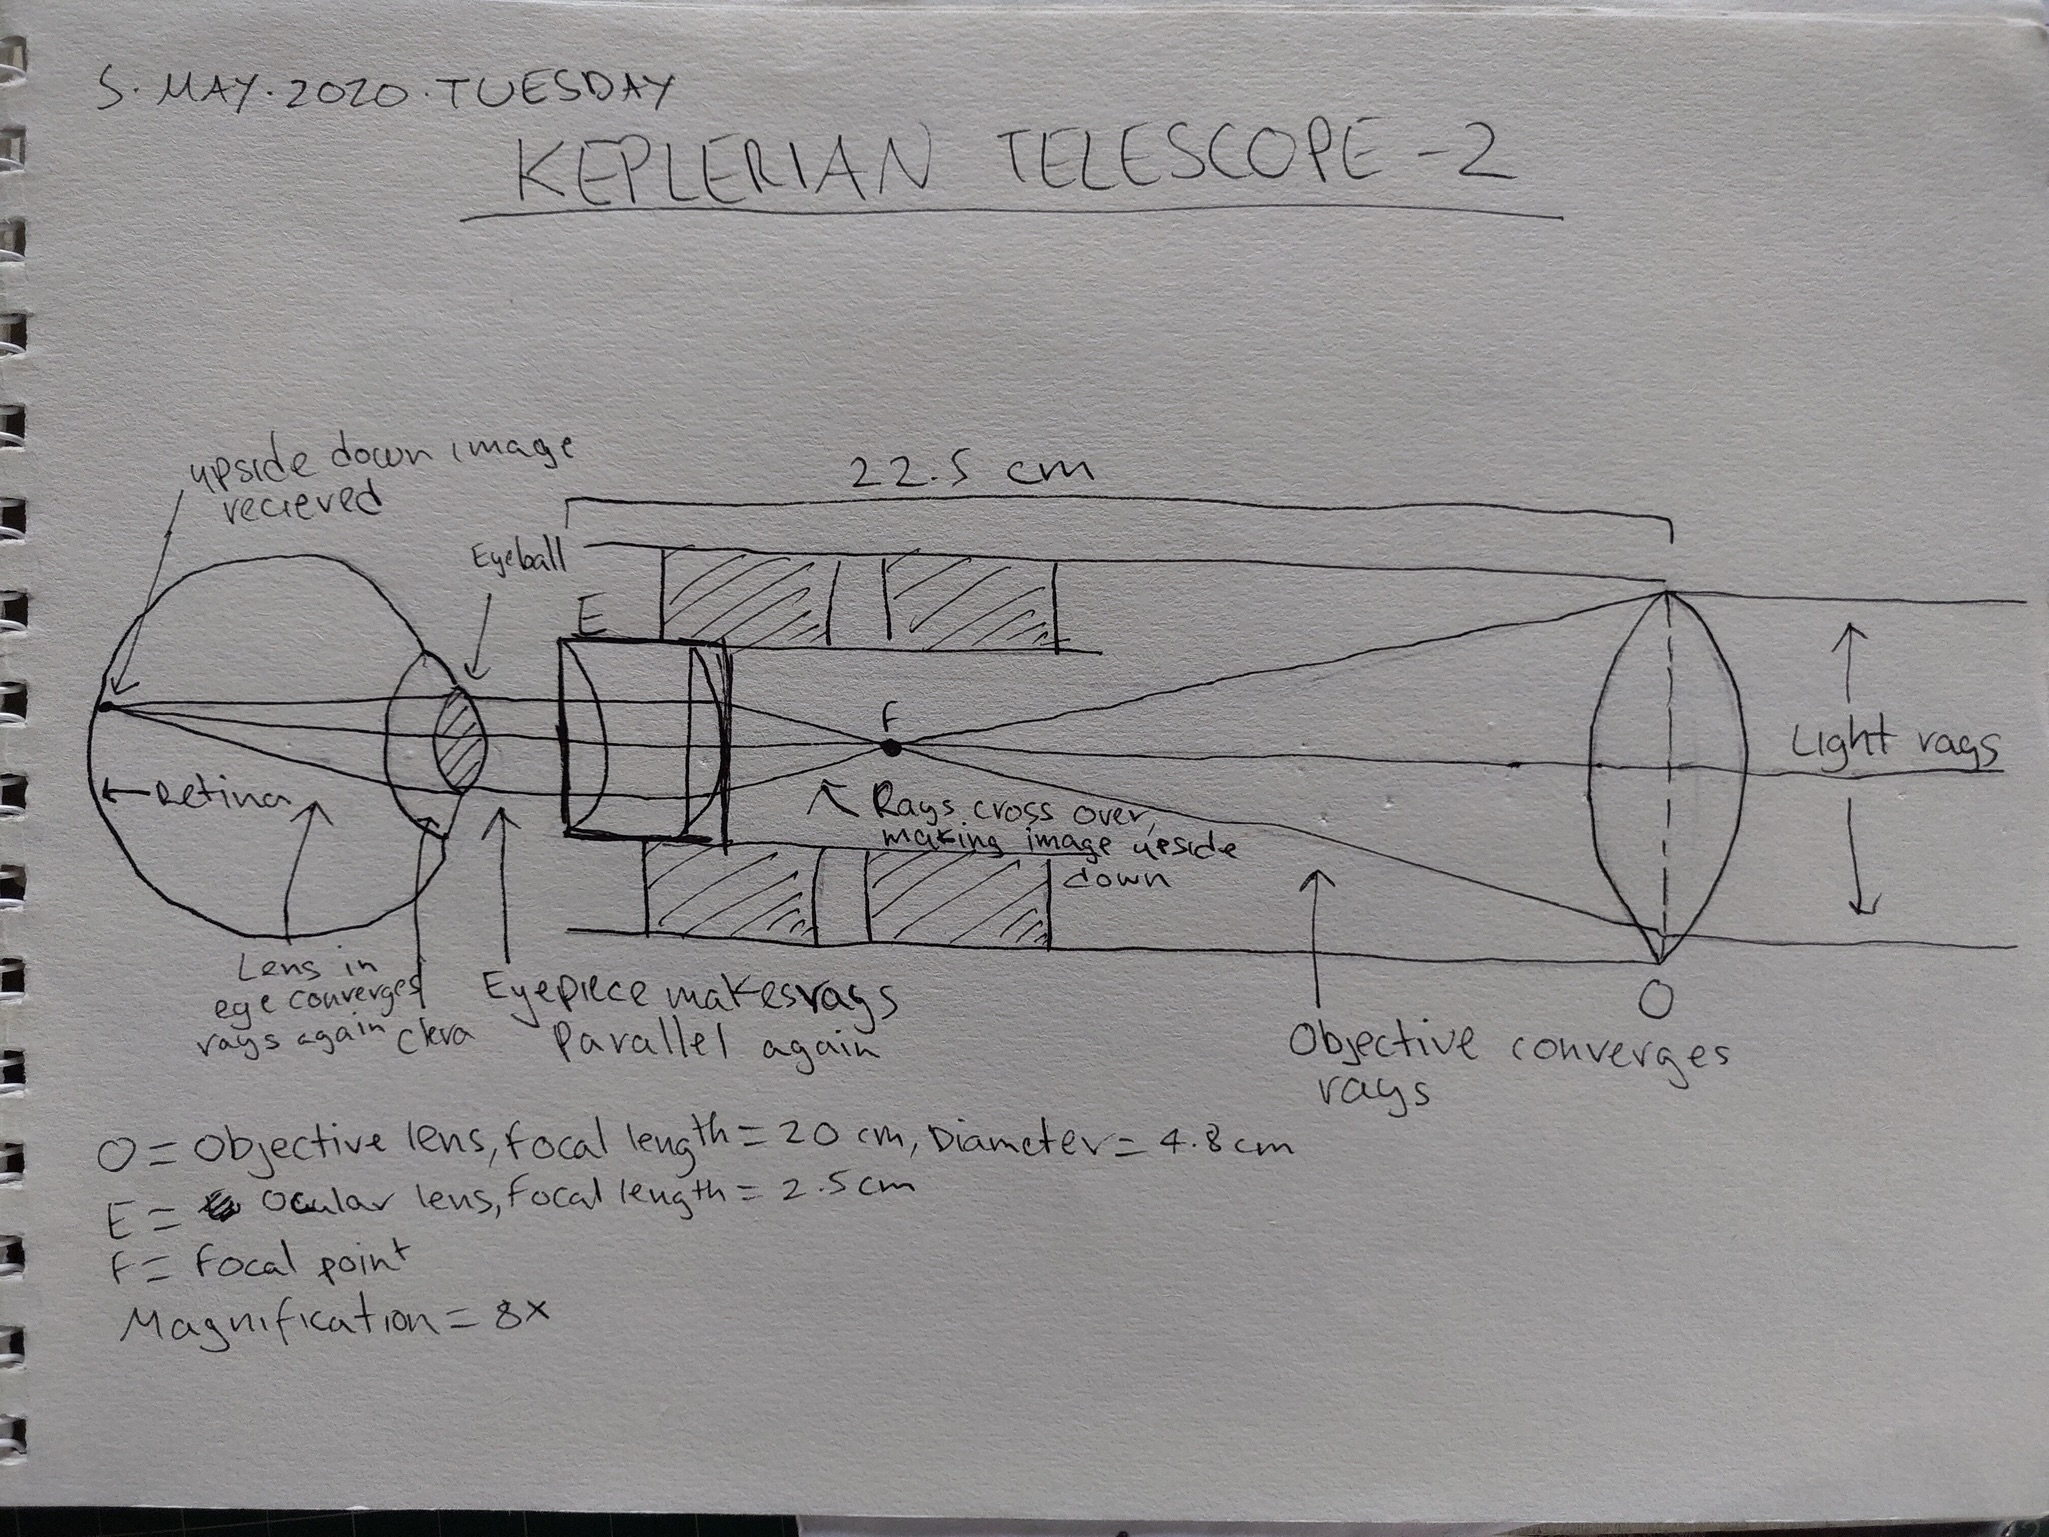 5. MAY. 2020. TUESDAY
KEPLERIAN TELESCOPE - 2
upside down image
recieved
22.5 cm
Eyeball
E
F
Light rays
← Retina
Rays cross over,
making image upside
down
Lens in
eye converges
rays again
Clera
Eyepiece makes rays
Parallel again
O
Objective converges
rays
O = Objective lens, focal length = 20 cm, Diameter = 4.8 cm
E = Ocular lens, focal length = 2.5 cm
F = Focal point
Magnification = 8x